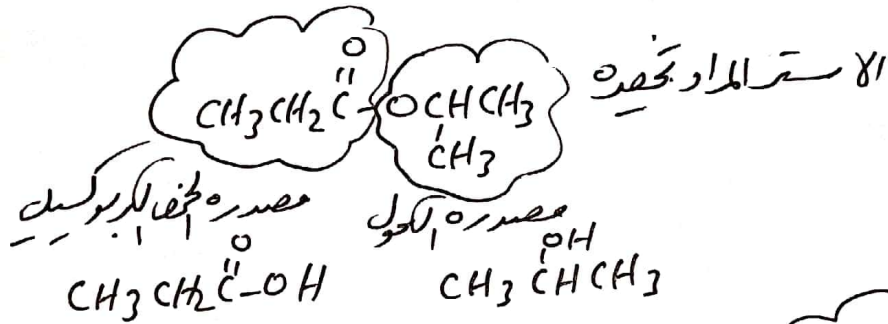 الاستر المراد تحضيره
O
CH3CH2C-OCHCH3
CH3
مصدره الحمض الكربوكسيلي
مصدره الكحول
O
CH3CH2C-OH
OH
CH3CHCH3